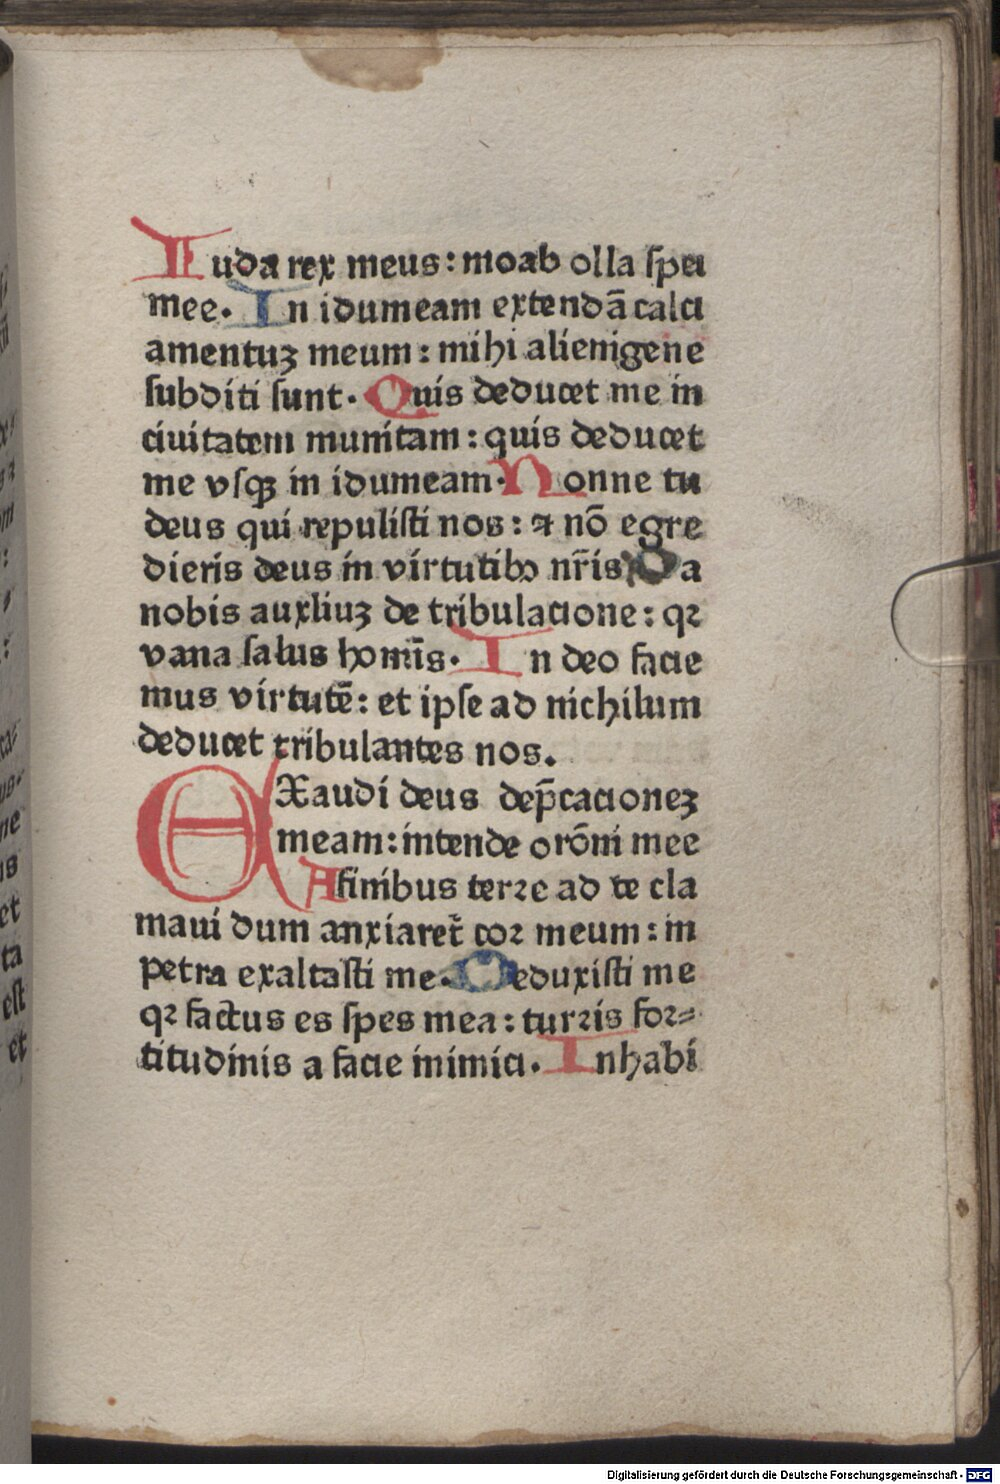 Iuda rex meus: moab olla spei
mee. In idumeam extendā calci
amentuꝫ meum: mihi alienigene
subditi sunt. Quis deducet me in
ciuitatem munitam: quis deducet
me vsqꝫ in idumeam. Nonne tu
deus qui repulisti nos: ⁊ nō egre
dieris deus in virtutibꝰ nr̄is Da
nobis auxliuꝫ de tribulacione: qꝛ
vana salus homīs. In deo facie
mus virtutē: et ipse ad nichilum
deducet tribulantes nos.
EXaudi deus dep̄cacioneꝫ
meam: intende orōni mee
A finibus terre ad te cla
maui dum anxiaret̄ cor meum: in
petra exaltasti me. Deduxisti me
qꝛ factus es spes mea: turris for⸗
titudinis a facie inimici. Inhabi
Digitalisierung gefördert durch die Deutsche Forschungsgemeinschaft - DFG